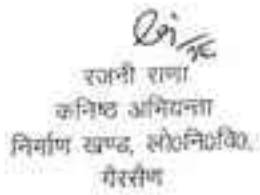 रजनी राणा
कनिष्ठ अभियन्ता
निर्माण खण्ड, लो०नि०वि०,
गैरसैण